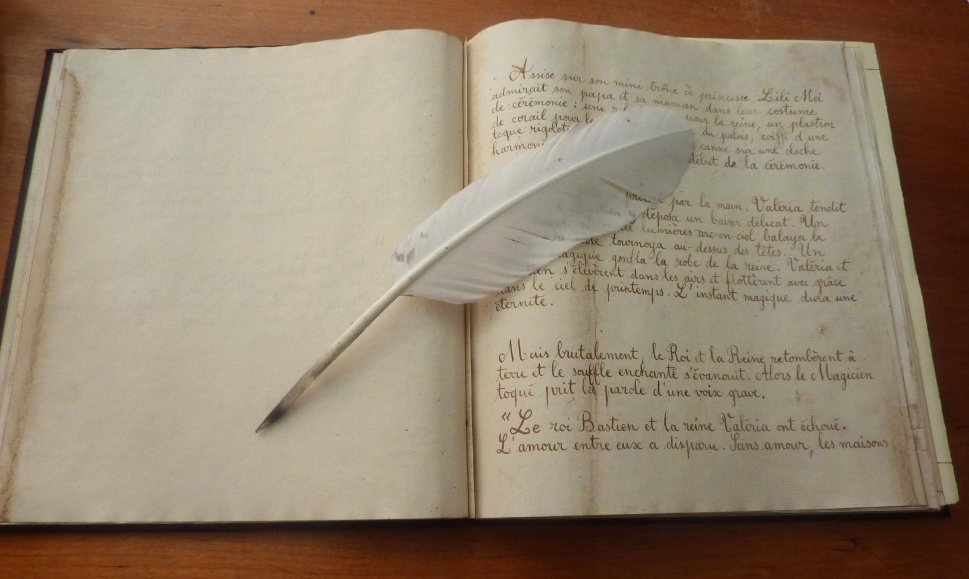 Assise sur son mini trône de princesse, Lili Mei
admirait son papa et sa maman dans leur costume
de cérémonie : une
de corail pour la pour la reine, un plastron
toque rigolote du palais, coiffé d'une
canne sur une cloche
début de la cérémonie.
par la main. Valéria tendit
déposa un baiser délicat. Un
lumières arc-en-ciel balaya la
tournoya au-dessus des têtes. Un
gonfla la robe de la reine. Valéria et
s'élevèrent dans les airs et flottèrent avec grâce
dans le ciel de printemps. L'instant magique dura une
éternité.
Mais brutalement, le Roi et la Reine retombèrent à
terre et le souffle enchanté s'évanouit. Alors le Magicien
toqué prit la parole d'une voix grave.
"Le roi Bastien et la reine Valéria ont échoué.
L'amour entre eux a disparu. Sans amour, les maisons